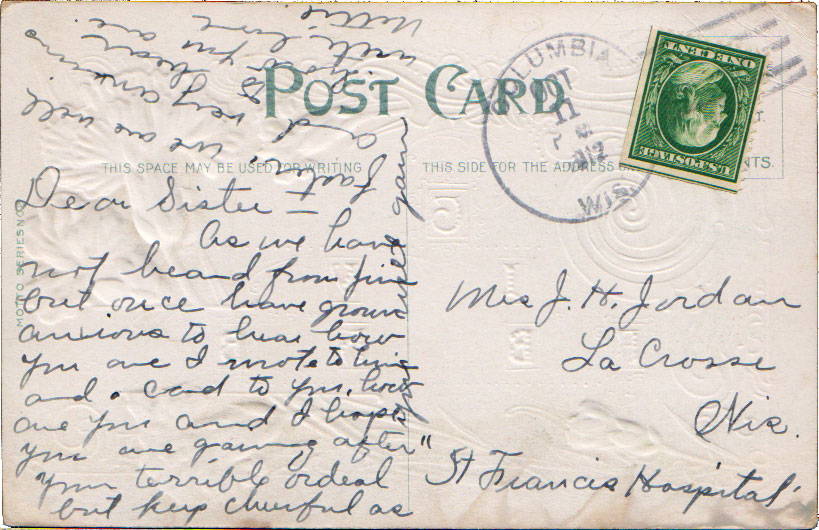 POST CARD
THIS SPACE MAY BE USED FOR WRITING
THIS SIDE FOR THE ADDRESS
MOTTO SERIES NO
COLUMBIA
OCT
11
1912
WIS.
U.S. POSTAGE
ONE CENT
Dear Sister —
As we have
not heard from Jim
but once have grown
anxious to hear how
you are I wrote to him
and a card to you, how
are you and I hope
you are gaining after
your terrible ordeal
but keep cheerful as
you will gain
faster.
we are well
and very anxious
to hear
how you are
with love
Nettie
Mrs J. H. Jordan
La Crosse
Wis.
"St Francis Hospital"